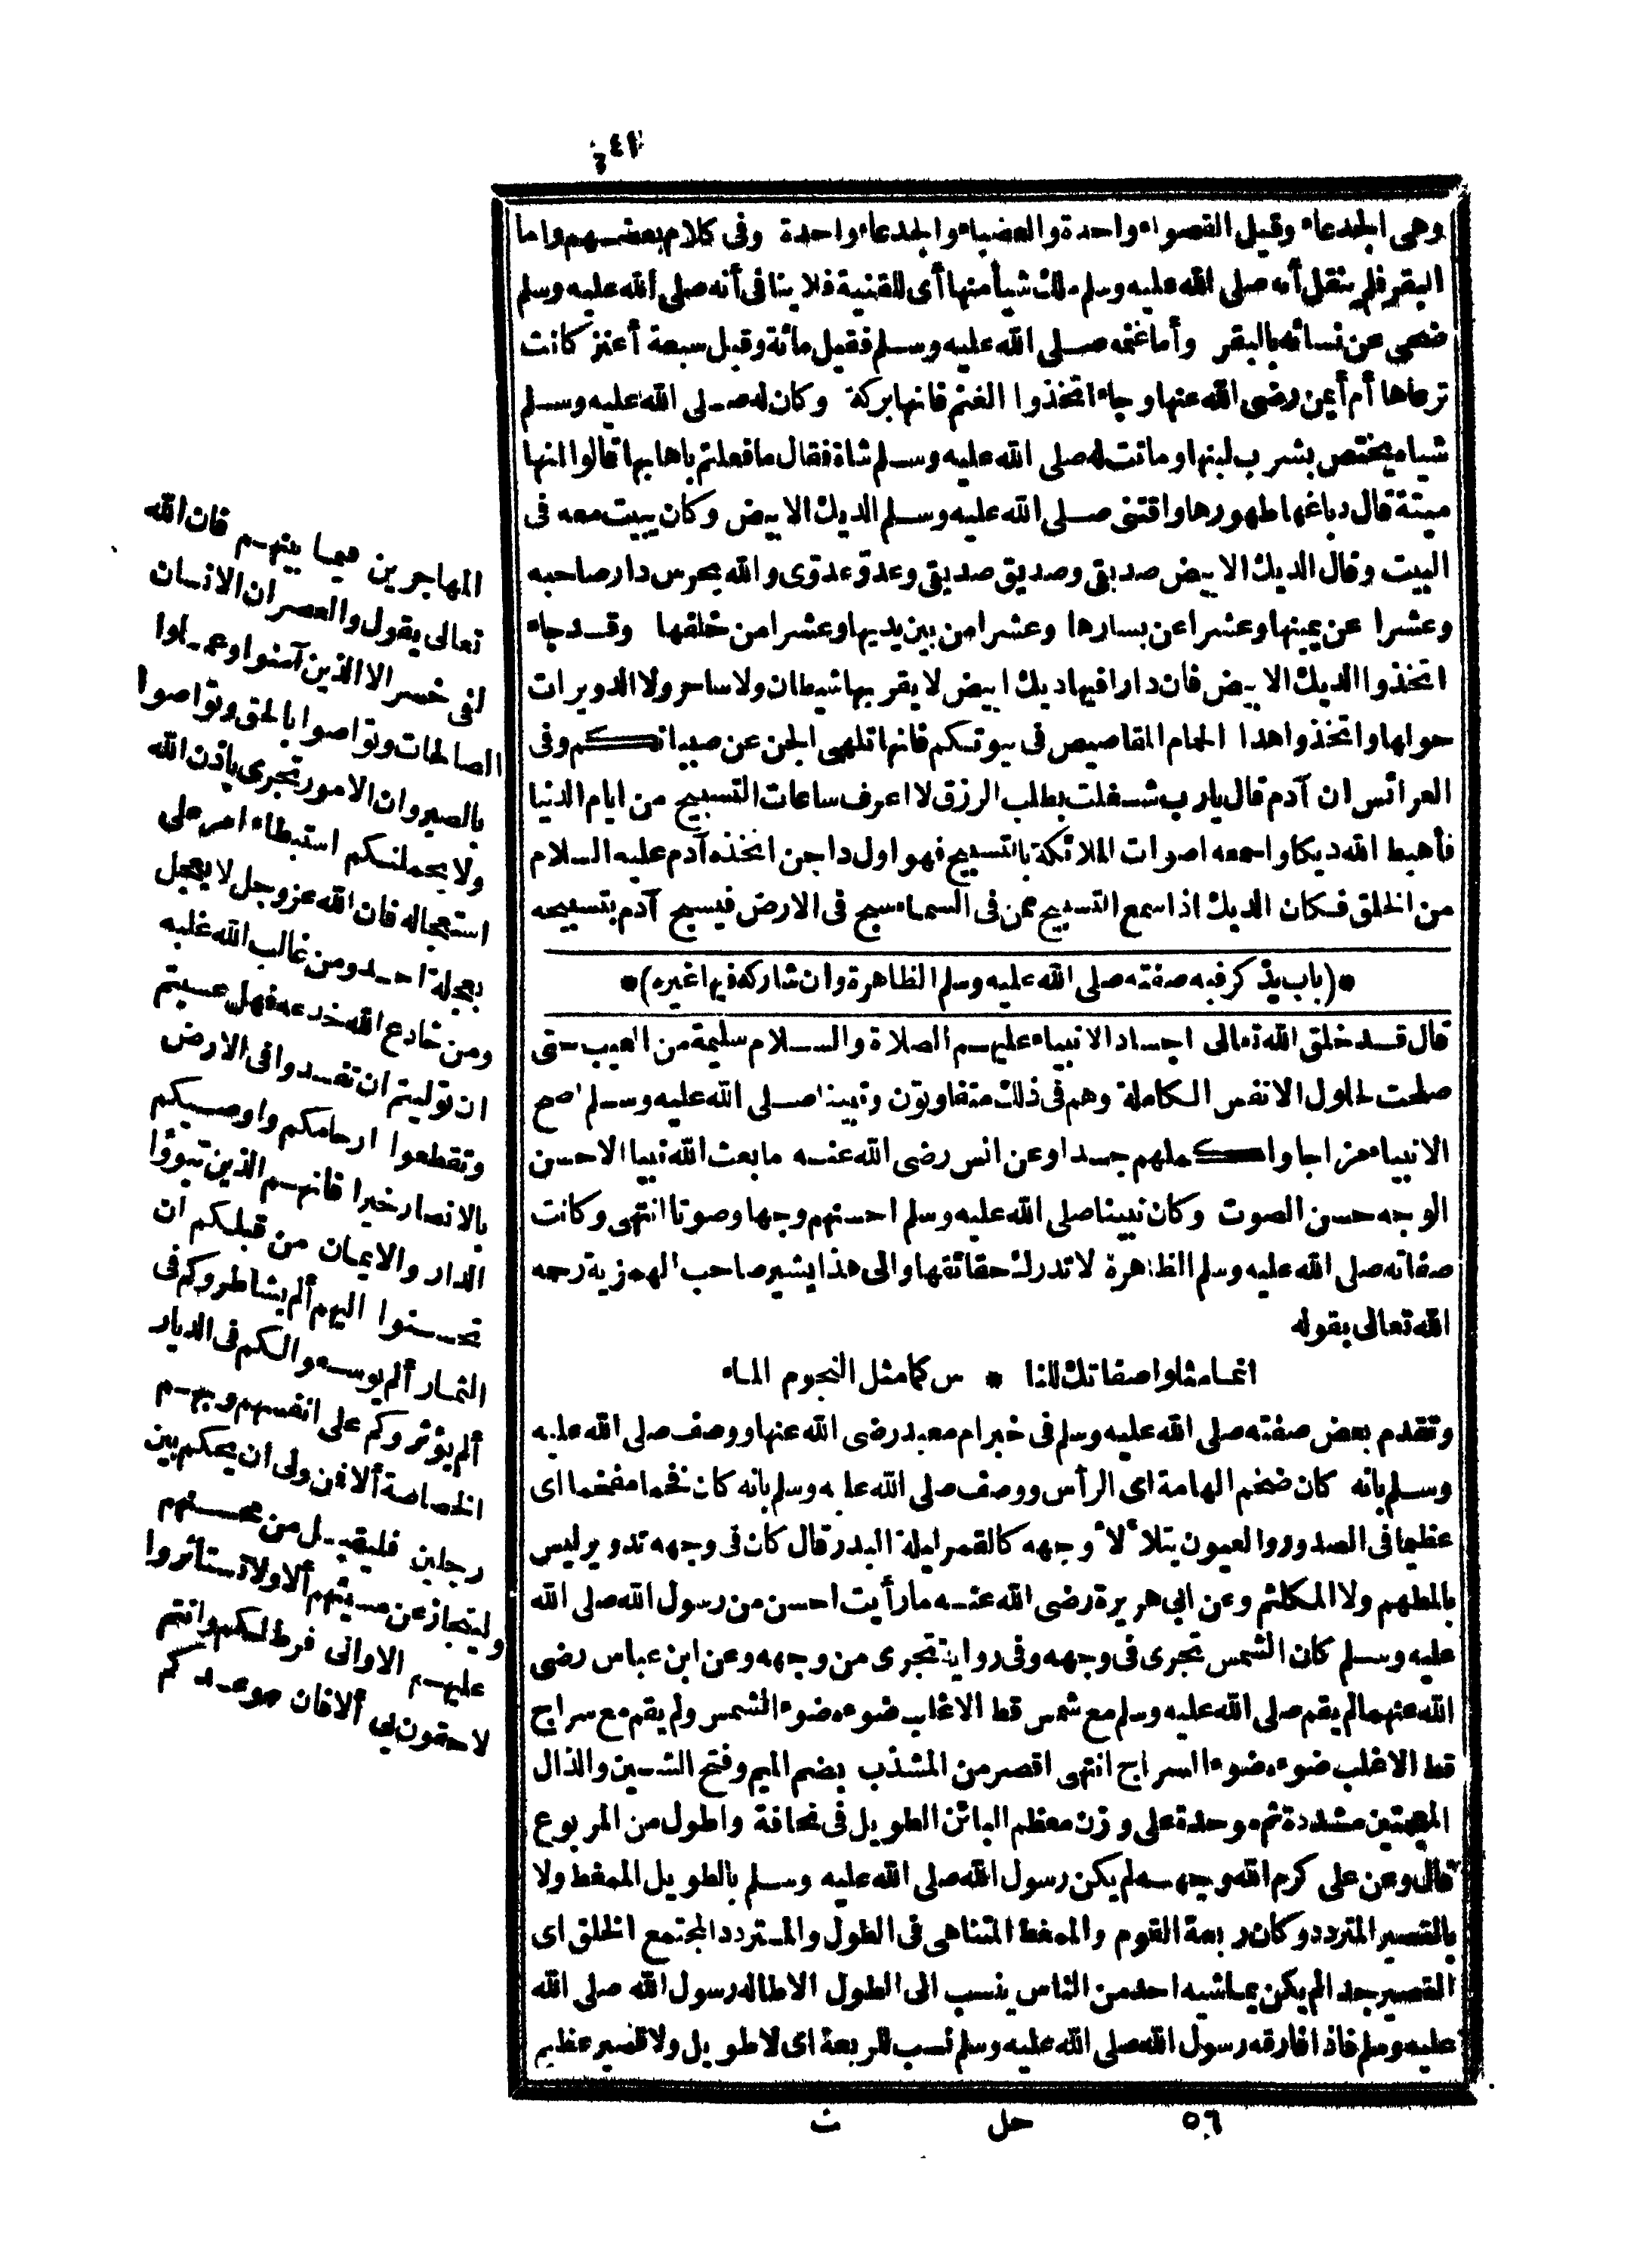 ٤٤١
وهى الجدعاء وقيل القصواء واحدة والعضباء والجدعاء واحدة وفى كلام بعضهم واما
البقر فلم ينقل أنه صلى الله عليه وسلم ملك شيأ منها أى للقنية فلا ينافى أنه صلى الله عليه وسلم
ضحى عن نسائه بالبقر وأما غنمه صلى الله عليه وسلم فقيل مائة وقيل سبعة أعنز كانت
ترعاها أم أيمن رضى الله عنها وجاء اتخذوا الغنم فانها بركة وكان له صلى الله عليه وسلم
شياه يختص بشرب لبنها وماتت له صلى الله عليه وسلم شاة فقال ما فعلتم باهابها قالوا انها
ميتة قال دباغها طهورها واقتنى صلى الله عليه وسلم الديك الابيض وكان يبيت معه فى
البيت وقال الديك الابيض صديقى وصديق صديقى وعدو عدوى والله يحرس دار صاحبه
وعشرا عن يمينها وعشرا عن يسارها وعشرا من بين يديها وعشرا من خلفها وقد جاء
اتخذوا الديك الابيض فان دارا فيها ديك ابيض لا يقربها شيطان ولا ساحر ولا الدويرات
حولها واتخذوا هذا الحمام المقاصيص فى بيوتكم فانها تلهى الجن عن صبيانكم وفى
العرائس ان آدم قال يارب شغلت بطلب الرزق لا اعرف ساعات التسبيح من ايام الدنيا
فأهبط الله ديكا واسمعه اصوات الملائكة بالتسبيح فهو اول داجن اتخذه آدم عليه السلام
من الخلق فكان الديك اذا سمع التسبيح ممن فى السماء سبح فى الارض فيسبح آدم بتسبيحه
*(باب يذكر فيه صفته صلى الله عليه وسلم الظاهرة وان شاركه فيها غيره)*
قال قد خلق الله تعالى اجساد الانبياء عليهم الصلاة والسلام سليمة من العيب حتى
صلحت لحلول الانفس الكاملة وهم فى ذلك متفاوتون ونبينا صلى الله عليه وسلم اصح
الانبياء مزاجا واكملهم جسدا وعن انس رضى الله عنه ما بعث الله نبيا الا حسن
الوجه حسن الصوت وكان نبينا صلى الله عليه وسلم احسنهم وجها وصوتا انتهى وكانت
صفاته صلى الله عليه وسلم الظاهرة لا تدرك حقائقها والى هذا يشير صاحب الهمزية رحمه
الله تعالى بقوله
انما مثلوا صفاتك للنا * س كما مثل النجوم الماء
وتقدم بعض صفته صلى الله عليه وسلم فى خبر ام معبد رضى الله عنها ووصف صلى الله عليه
وسلم بانه كان ضخم الهامة اى الرأس ووصف صلى الله عليه وسلم بانه كان فخما مفخما اى
عظيما فى الصدور والعيون يتلألأ وجهه كالقمر ليلة البدر قال كان فى وجهه تدوير ليس
بالمطهم ولا المكلثم وعن ابى هريرة رضى الله عنه ما رأيت احسن من رسول الله صلى الله
عليه وسلم كان الشمس تجرى فى وجهه وفى رواية تجرى من وجهه وعن ابن عباس رضى
الله عنهما لم يقم صلى الله عليه وسلم مع شمس قط الا غلب ضوءه ضوء الشمس ولم يقم مع سراج
قط الا غلب ضوءه ضوء السراج انتهى اقصر من المشذب بضم الميم وفتح الشين والذال
المعجمتين مشددة ثم موحدة على وزن معظم البائن الطويل فى نحافة واطول من المربوع
قال وعن على كرم الله وجهه لم يكن رسول الله صلى الله عليه وسلم بالطويل الممغط ولا
بالقصير المتردد وكان ربعة القوم والممغط المتناهى فى الطول والمتردد المجتمع الخلق اى
القصير جدا لم يكن يماشيه احد من الناس ينسب الى الطول الا طاله رسول الله صلى الله
عليه وسلم فاذا فارقه رسول الله صلى الله عليه وسلم نسب للربعة اى لا طويل ولا قصير عظيم
المهاجرين فيما بينهم فان الله
تعالى يقول والعصر ان الانسان
لفى خسر الا الذين آمنوا وعملوا
الصالحات وتواصوا بالحق وتواصوا
بالصبر وان الامور تجرى باذن الله
ولا يحملنكم استبطاء امر على
استعجاله فان الله عز وجل لا يعجل
بعجلة احد ومن غالب الله غلبه
ومن خادع الله خدعه فهل عسيتم
ان توليتم ان تفسدوا فى الارض
وتقطعوا ارحامكم واوصيكم
بالانصار خيرا فانهم الذين تبوؤا
الدار والايمان من قبلكم ان
تحسنوا اليهم ألم يشاطروكم فى
الثمار ألم يوسعوا لكم فى الديار
ألم يؤثروكم على انفسهم وبهم
الخصاصة ألا فمن ولى ان يحكم بين
رجلين فليقبل من محسنهم
وليتجاوز عن مسيئهم ألا ولا تستأثروا
عليهم ألا وانى فرط لكم وانتم
لاحقون بى ألا فان موعدكم
٥٦ حل ث